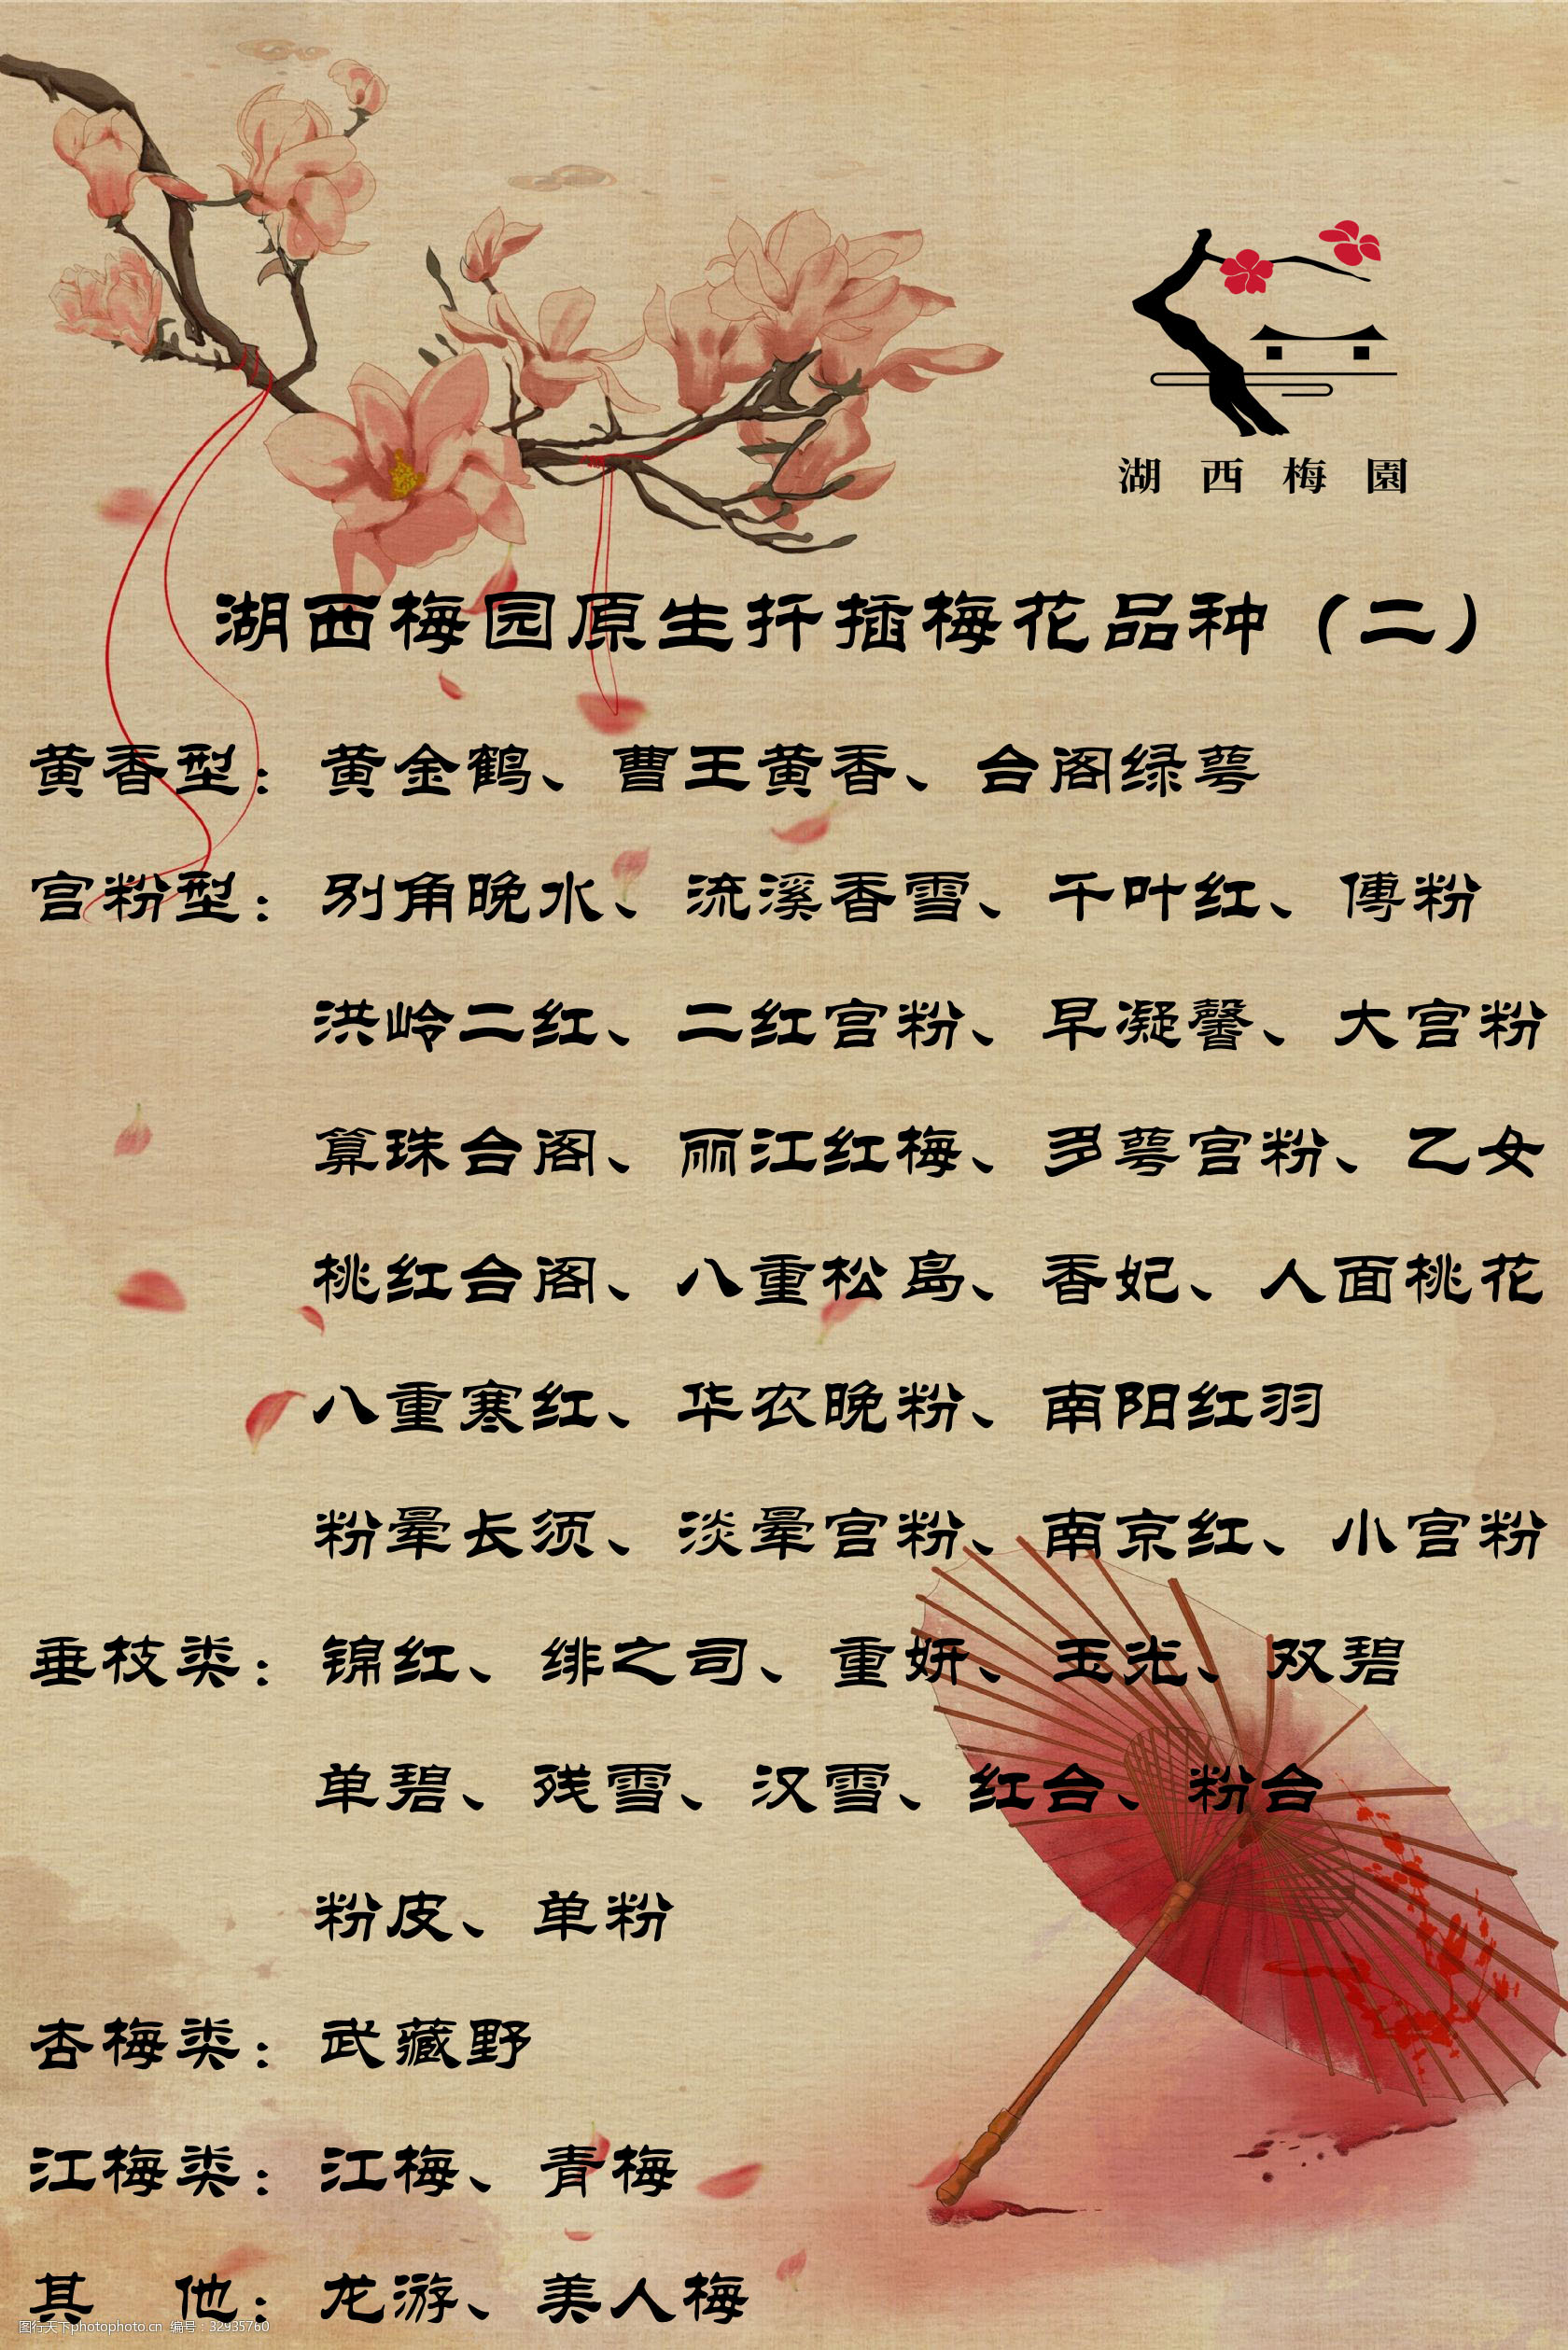 湖西梅園
湖西梅园原生扦插梅花品种（二）
黄香型：黄金鹤、曹王黄香、台阁绿萼
宫粉型：别角晚水、流溪香雪、千叶红、傅粉
洪岭二红、二红宫粉、早凝馨、大宫粉
算珠台阁、丽江红梅、多萼宫粉、乙女
桃红台阁、八重松岛、香妃、人面桃花
八重寒红、华农晚粉、南阳红羽
粉晕长须、淡晕宫粉、南京红、小宫粉
垂枝类：锦红、绯之司、重妍、玉光、双碧
单碧、残雪、汉雪、红台、粉台
粉皮、单粉
杏梅类：武藏野
江梅类：江梅、青梅
其　他：龙游、美人梅
图行天下photophoto.cn 编号：32935760